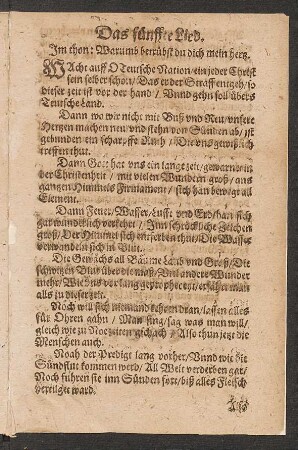 Das fünffte Lied.
Im thon: Warumb betrübst du dich mein hertz.
WAcht auff O Teutsche Nation/ ein jeder Christ
sein selber schon/ Das er der Straff entgeh/ so
dieser zeit ist vor der hand/ Vnnd gehn soll übers
Teutsche Land.
Dann wo wir nicht mit Buß vnd Rew/ vnsere
Hertzen machen new/ vnd stehn von Sünden ab/ ist
gebunden ein scharpffe Ruth/ Die vns gewißlich
treffen thut.
Dann Gott hat vns ein lange zeit/ gewarnet in
der Christenheit/ mit vielen Wundern groß/ am
gantzen Himmels Firmament/ sich han bewegt all
Element.
Dann Fewr/ Wasser/ Lufft vnd Erd/ han sich
gar wunderlich verkehrt/ Im schröckliche Zeichen
groß/ Der Himmel sich entferben thut/ Die Wasser
verwandeln sich in Blut.
Die Gewächs all Bäume Laub vnd Graß/ Die
schwitzen Blut über die maß/ Vnd andere Wunder
mehr/ Wie vns vor lang gepropheceyt/ erfahrn man
alls zu dieser zeit.
Noch will sich niemand schorn dran/ lassen alles
für Ohren gahn/ Man sing/ sag was man will/
gleich wie zu Noe zeiten geschach/ Also thun jetzt die
Menschen auch.
Noah der Predigt lang vorher/ Vnnd wie die
Sündflut kommen werd/ All Welt verderben gar/
Noch führen sie inn Sünden fort/ biß alles Fleisch
vertilget ward.